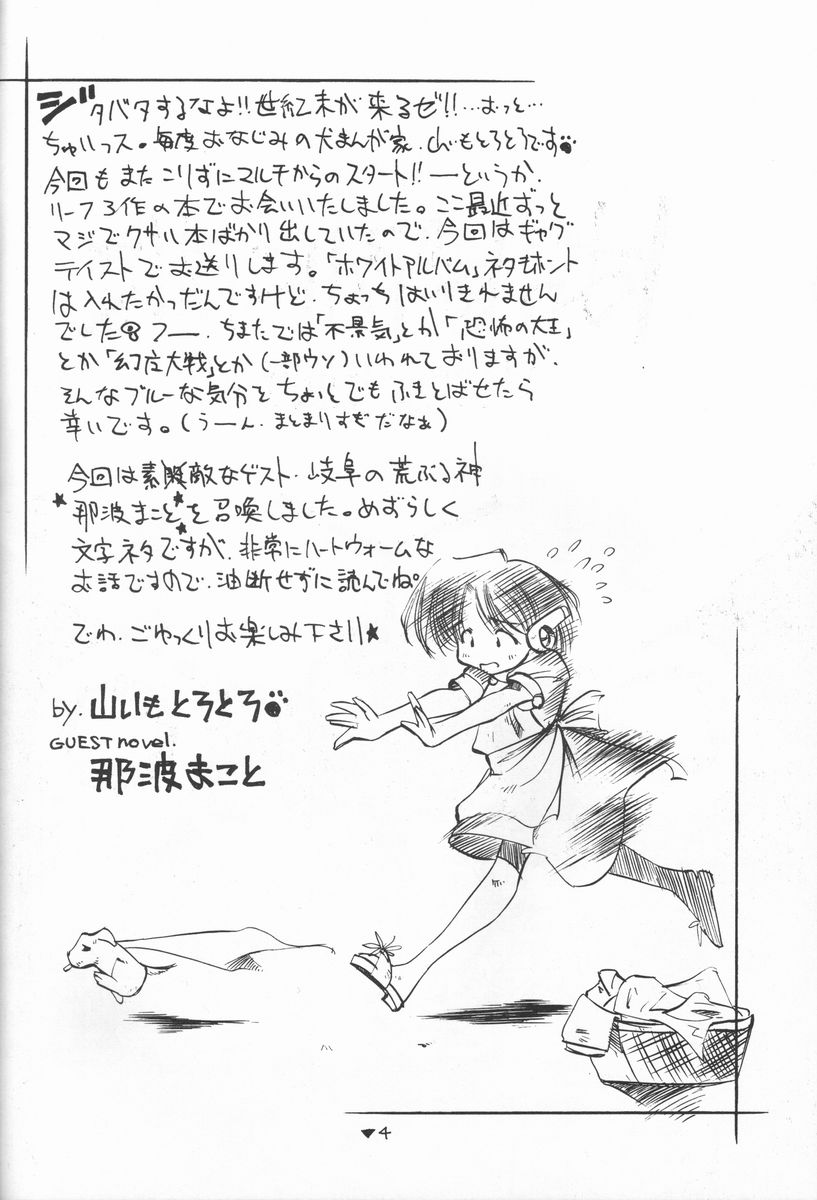 ジタバタするなよ!!世紀末が来るゼ!!…おっと…
ちゅいっス。毎度おなじみの犬まんが家、山いもとろとろです
今回もまたこりずにマルチからのスタート!!ーというか、
リーフ3作の本でお会いいたしました。ここ最近ずっと
マジでクサい本ばかり出していたので、今回はギャグ
テイストでお送りします。「ホワイトアルバム」ネタもホント
は入れたかっだんですけど、ちょっちはいりきれません
でした フー、ちまたでは「不景気」とか「恐怖の大王」
とか「幻魔大戦」とか(一部ウソ)いわれておりますが、
そんなブルーな気分をちょいとでもふきとばせたら
幸いです。(うーん、まとまりすぎだなぁ)
今回は素敵なゲスト、岐阜の荒ぶる神
★那波まこと★を召喚しました。めずらしく
文字ネタですが、非常にハートウォームな
お話ですので、油断せずに読んでね。
でわ、ごゆっくりお楽しみ下さい★
by.山いもとろとろ
GUEST novel.
那波まこと
▼4